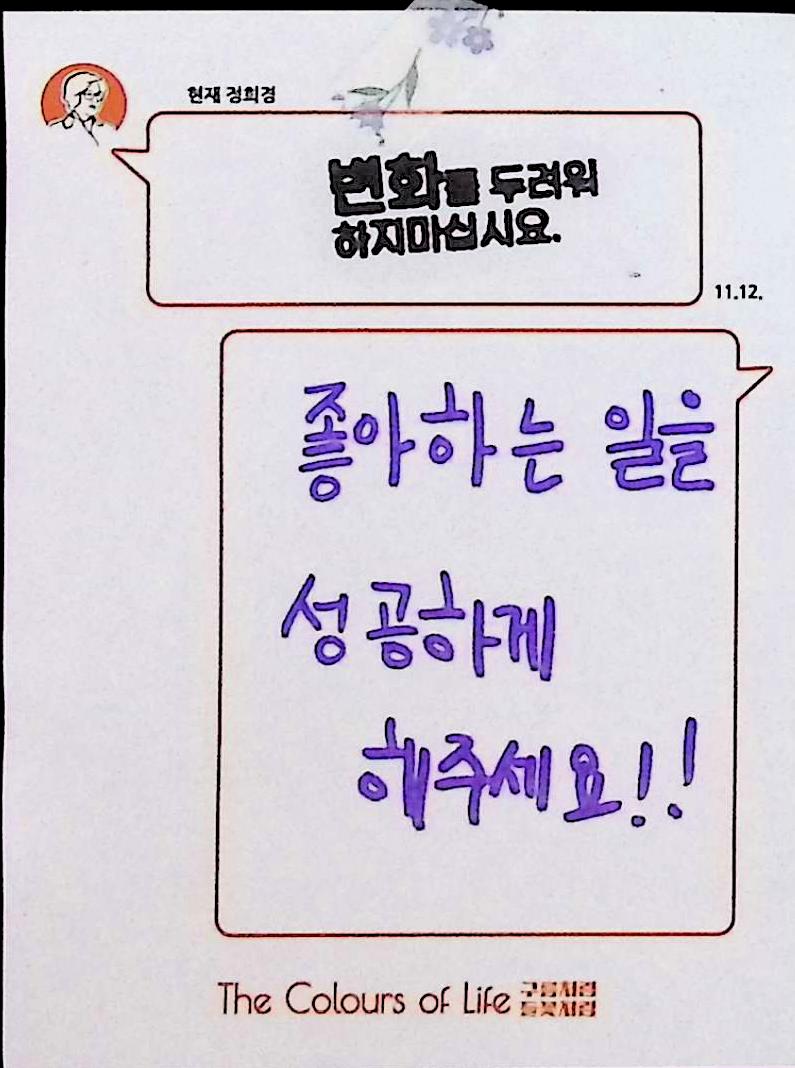 현재 정희경
변화를 두려워
하지마십시요.
11.12.
좋아하는 일을
성공하게
해주세요!!
The Colours of Life 구름처럼
들꽃처럼